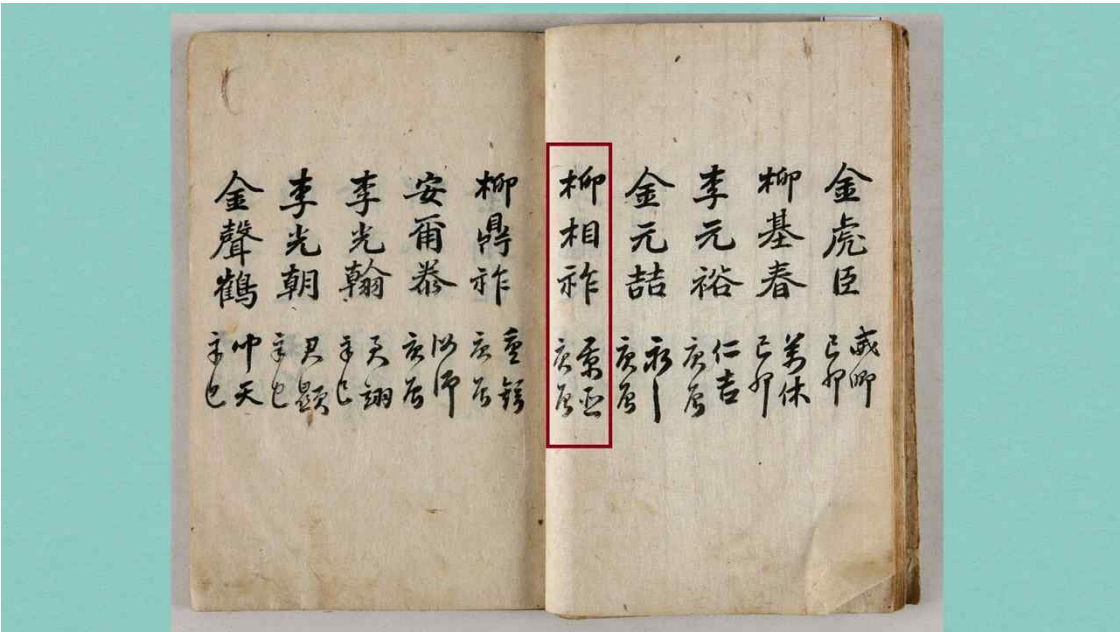 金虎臣 威卿 己卯
柳基春 休 己卯
李元裕 仁吉 庚辰
金元喆 永 庚辰
柳相祚 庚辰
柳鼎祚 庚辰
安爾 庚辰
李光翰 天翊 辛巳
李光朝 君顯 辛巳
金聲鶴 仲天 辛巳